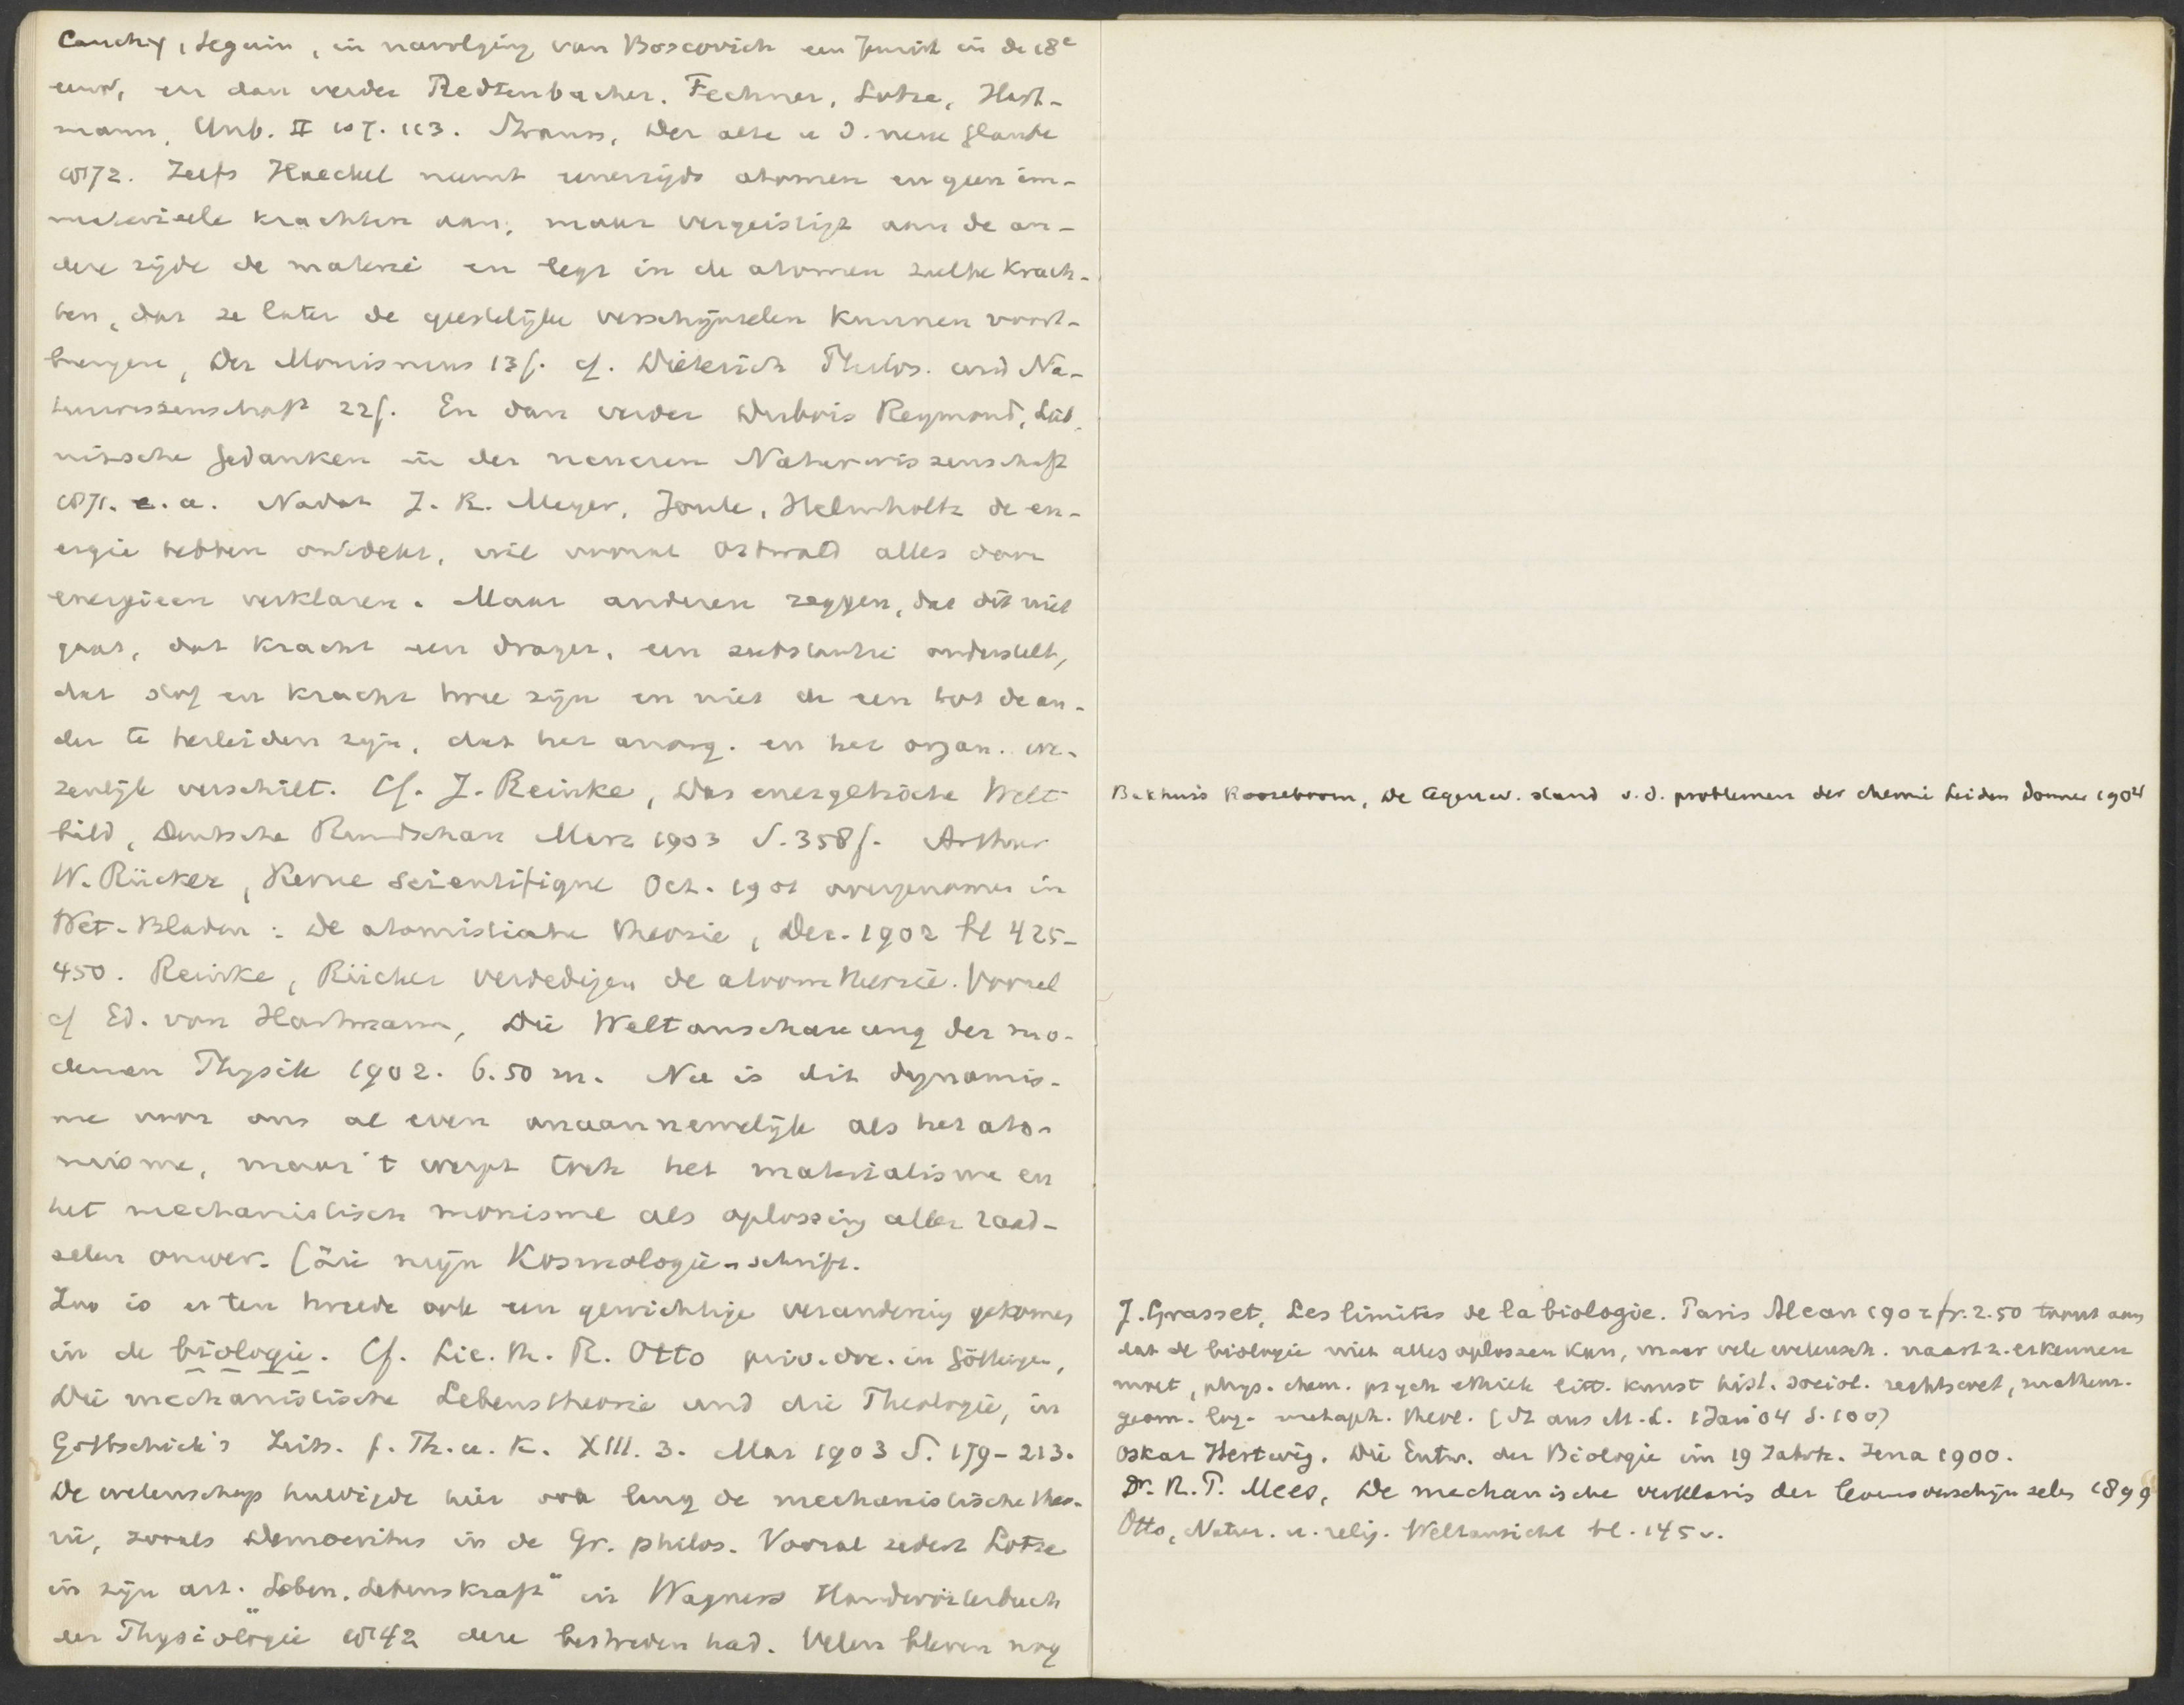 Cauchy, Seguin, in navolging van Boscovich een Jezuit in de 18e
eeuw, en dan verder Redtenbacher. Fechner, Lotze, Hart-
mann, Unb. II 107. 113. Strauss, Der alte u d. neue Glaube
1872. Zelfs Haeckel neemt eenerzijds atomen en geen im-
materieele krachten aan, maar vergeistigt aan de an-
dere zijde de materie en legt in de atomen zulke krach-
ten, dat ze later de geestelijke verschijnselen kunnen voort-
brengen, Der Monismus 13f. cf. Dieterich Philos. und Na-
turwissenschaft 22f. En dan verder Dubois Reymond, Leib-
nizsche Gedanken in der neueren Naturwissenschaft
1871. e.a. Nadat J. R. Meyer, Joule, Helmholtz de en-
ergie hebben ontdekt, wil vooral Ostwald alles door
energieen verklaren. Maar anderen zeggen, dat dit niet
gaat, dat kracht een drager, een substantie onderstelt,
dat stof en kracht twee zijn en niet de een tot de an-
der te herleiden zijn, dat het anorg. en het organ. we-
zenlijk verschilt. Cf. J. Reinke, Das energetische Welt
bild, Deutsche Rundschau Marz 1903 S. 358f. Arthur
W. Rücker, Revue Scientifique Oct. 1901 overgenomen in
Wet. Bladen: De atomistische theorie, Dec. 1902 bl 425-
450. Reinke, Rücker verdedigen de atoomtheorie. Vooral
cf Ed. von Hartmann, Die Weltanschauung der mo-
dernen Physik 1902. 6.50 m. Nu is dit dynamis-
me voor ons al even onaannemelijk als het ato-
misme, maar 't werpt toch het materialisme en
het mechanistisch monisme als oplossing aller raad-
selen omver. (zie mijn Kosmologie-schrift.
Zoo is er ten tweede ook een gewichtige verandering gekomen
in de biologie. Cf. Lic. th. R. Otto priv. doc. in Göttingen,
Die mechanistische Lebenstheorie und die Theologie, in
Gottschick's Zeits. f. Th. u. K. XIII. 3. Mar 1903 S. 179-213.
De wetenschap huldigde hier ook lang de mechanistische theo-
rie, zooals Democritus in de Gr. philos. Vooral sedert Lotze
in zijn art. "Leben. Lebenskraft" in Wagners Handwörterbuch
der Physiologie 1842 deze bestreden had. Velen bleven nog
Bakhuis Roozeboom, De tegenw. stand v. d. problemen der chemie Leiden Donner 1904
J. Grasset, Les limites de la biologie. Paris Alcan 1902 fr. 2.50 toont aan
dat de biologie niet alles oplossen kan, maar vele wetensch. naast z. erkennen
moet, phys. chem. psych ethiek litt. kunst hist. sociol. rechtswet, mathem.
geom. log. metaph. theol. (St aus M.-L. 1 Jan '04 S. 100)
Oskar Hertwig. Die Entw. der Biologie im 19 Jahrh. Jena 1900.
Dr. R. P. Mees, De mechanische verklaring der levensverschijnselen 1899
Otto, Natur. u. relig. Weltansicht bl. 145 v.